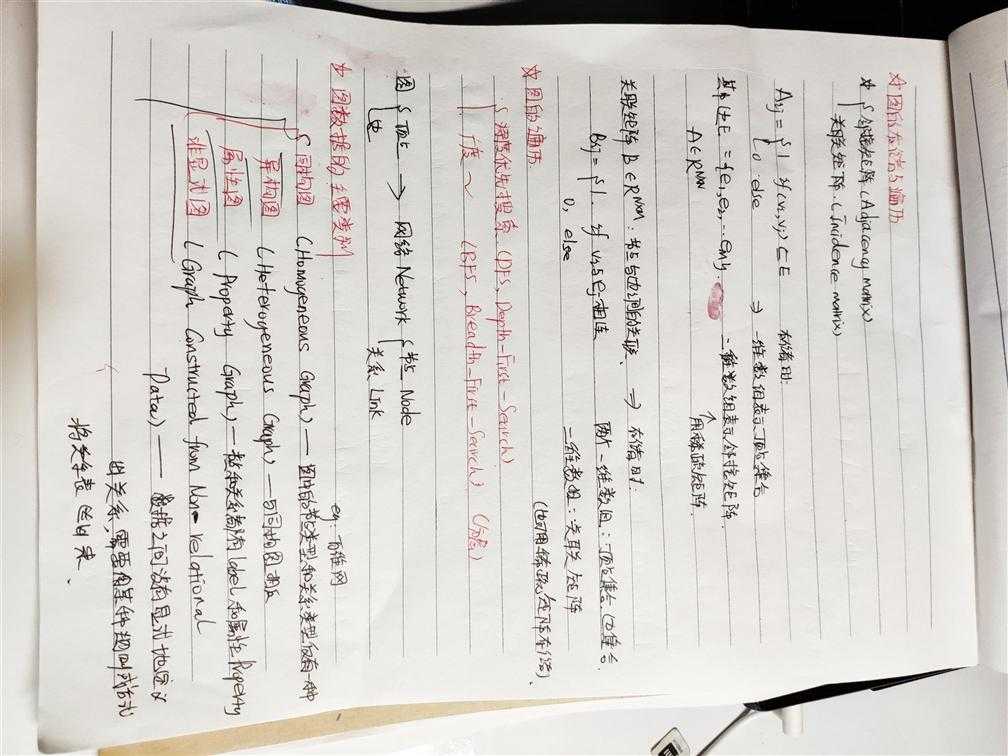 ☆图的存储与遍历
☆ { 邻接矩阵 (Adjacency matrix)
关联矩阵 (Incidence matrix)
Aij = { 1 if (vi,vj) ⊂ E
0 else
⇒ 存储时:
一维数组表示顶点集合
二维数组表示邻接矩阵.
↑
用稀疏矩阵.
E = {e1, e2, ... em}.
A∈R^N×N
关联矩阵 B∈R^N×M: 节点与边间的关联. ⇒ 存储时:
Bij = { 1, if vi与ej相连
0, else
两个一维数组: 顶点集合、边集合.
二维数组: 关联矩阵
(也可用稀疏矩阵存储).
☆图的遍历
{ 深度优先搜索 (DFS, Depth-First-Search)
广度~ (BFS, Breadth-First-Search)
图 { 顶点
边
→ 网络 Network { 节点 Node
关系 Link
☆图数据的主要类别
{ 同构图 (Homogeneous Graph) — 图中的节点类型和关系类型仅有一种
eg. 万维网
异构图 (Heterogeneous Graph) — 与同构图相反
属性图 (Property Graph) — 节点和关系都有label和属性Property
非显式图 (Graph Constructed from Non-relational
Data) — 数据之间没有显式地定义
出关系, 需要用某种规则或方式
将其 出来.